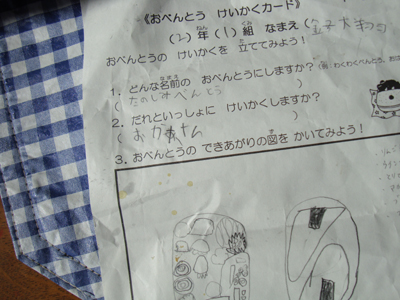 《おべんとう けいかくカード》
(2)年(1)組 なまえ(金子大
おべんとうの けいかくを 立ててみよう!
1. どんな名前の おべんとうにしますか?(例:わくわくべんとう、
(たのしみべんとう)
2. だれといっしょに けいかくしますか?
(おかあさん)
3. おべんとうの できあがりの図を かいてみよう!